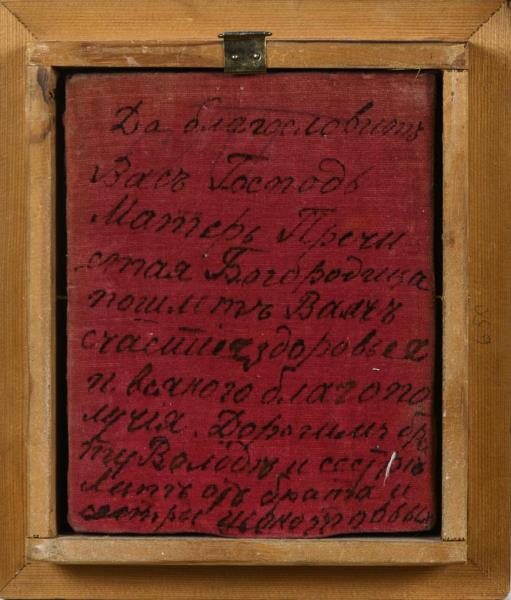 Да благословитъ
Васъ Господь
Матерь Пречи
стая Богородица
пошлетъ Вамъ
счастие здоровья
и всякого благопо
лучия. Дорогимъ бра
ту Володѣ и сестрѣ
отъ брата и
сестры
650